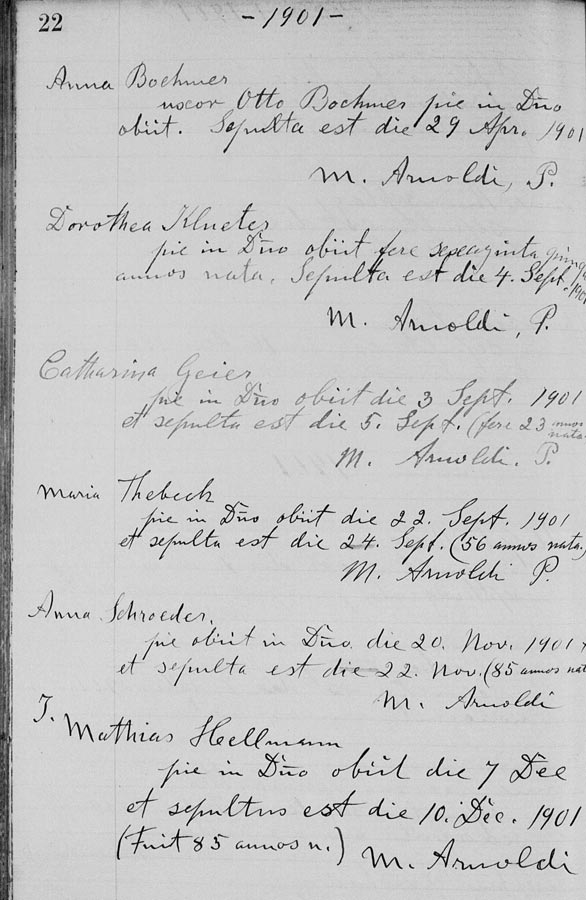 22
-1901-
Anna Boehmer
uxor Otto Boehmer pie in Dno
obiit. Sepulta est die 29 Apr. 1901
M. Arnoldi, P.
Dorothea Klueter
pie in Dno obiit fere sexaginta
annos nata. Sepulta est die 4. Sept. 1901
M. Arnoldi, P.
Catharina Geier
pie in Dno obiit die 3 Sept. 1901
et sepulta est die 5. Sept. (fere 23 annos nata
M. Arnoldi. P.
Maria Thebeck
pie in Dno obiit die 22. Sept. 1901
et sepulta est die 24. Sept. (56 annos nata.)
M. Arnoldi P.
Anna Schroeder.
pie obiit in Dno. die 20. Nov. 1901
et sepulta est die 22. Nov. (85 annos nat
M. Arnoldi
T. Mathias Hellmann
pie in Dno obiit die 7 Dec
et sepultus est die 10. Dec. 1901
(Fuit 85 annos n.)
M. Arnoldi